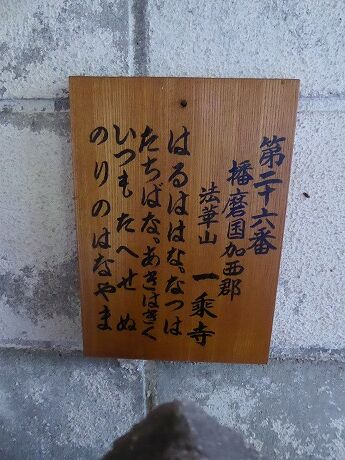 第二十六番
播磨国加西郡
法華山 一乗寺
はるははな、なつは
たちばな、あきはきく
いつもたへせぬ
のりのはなやま